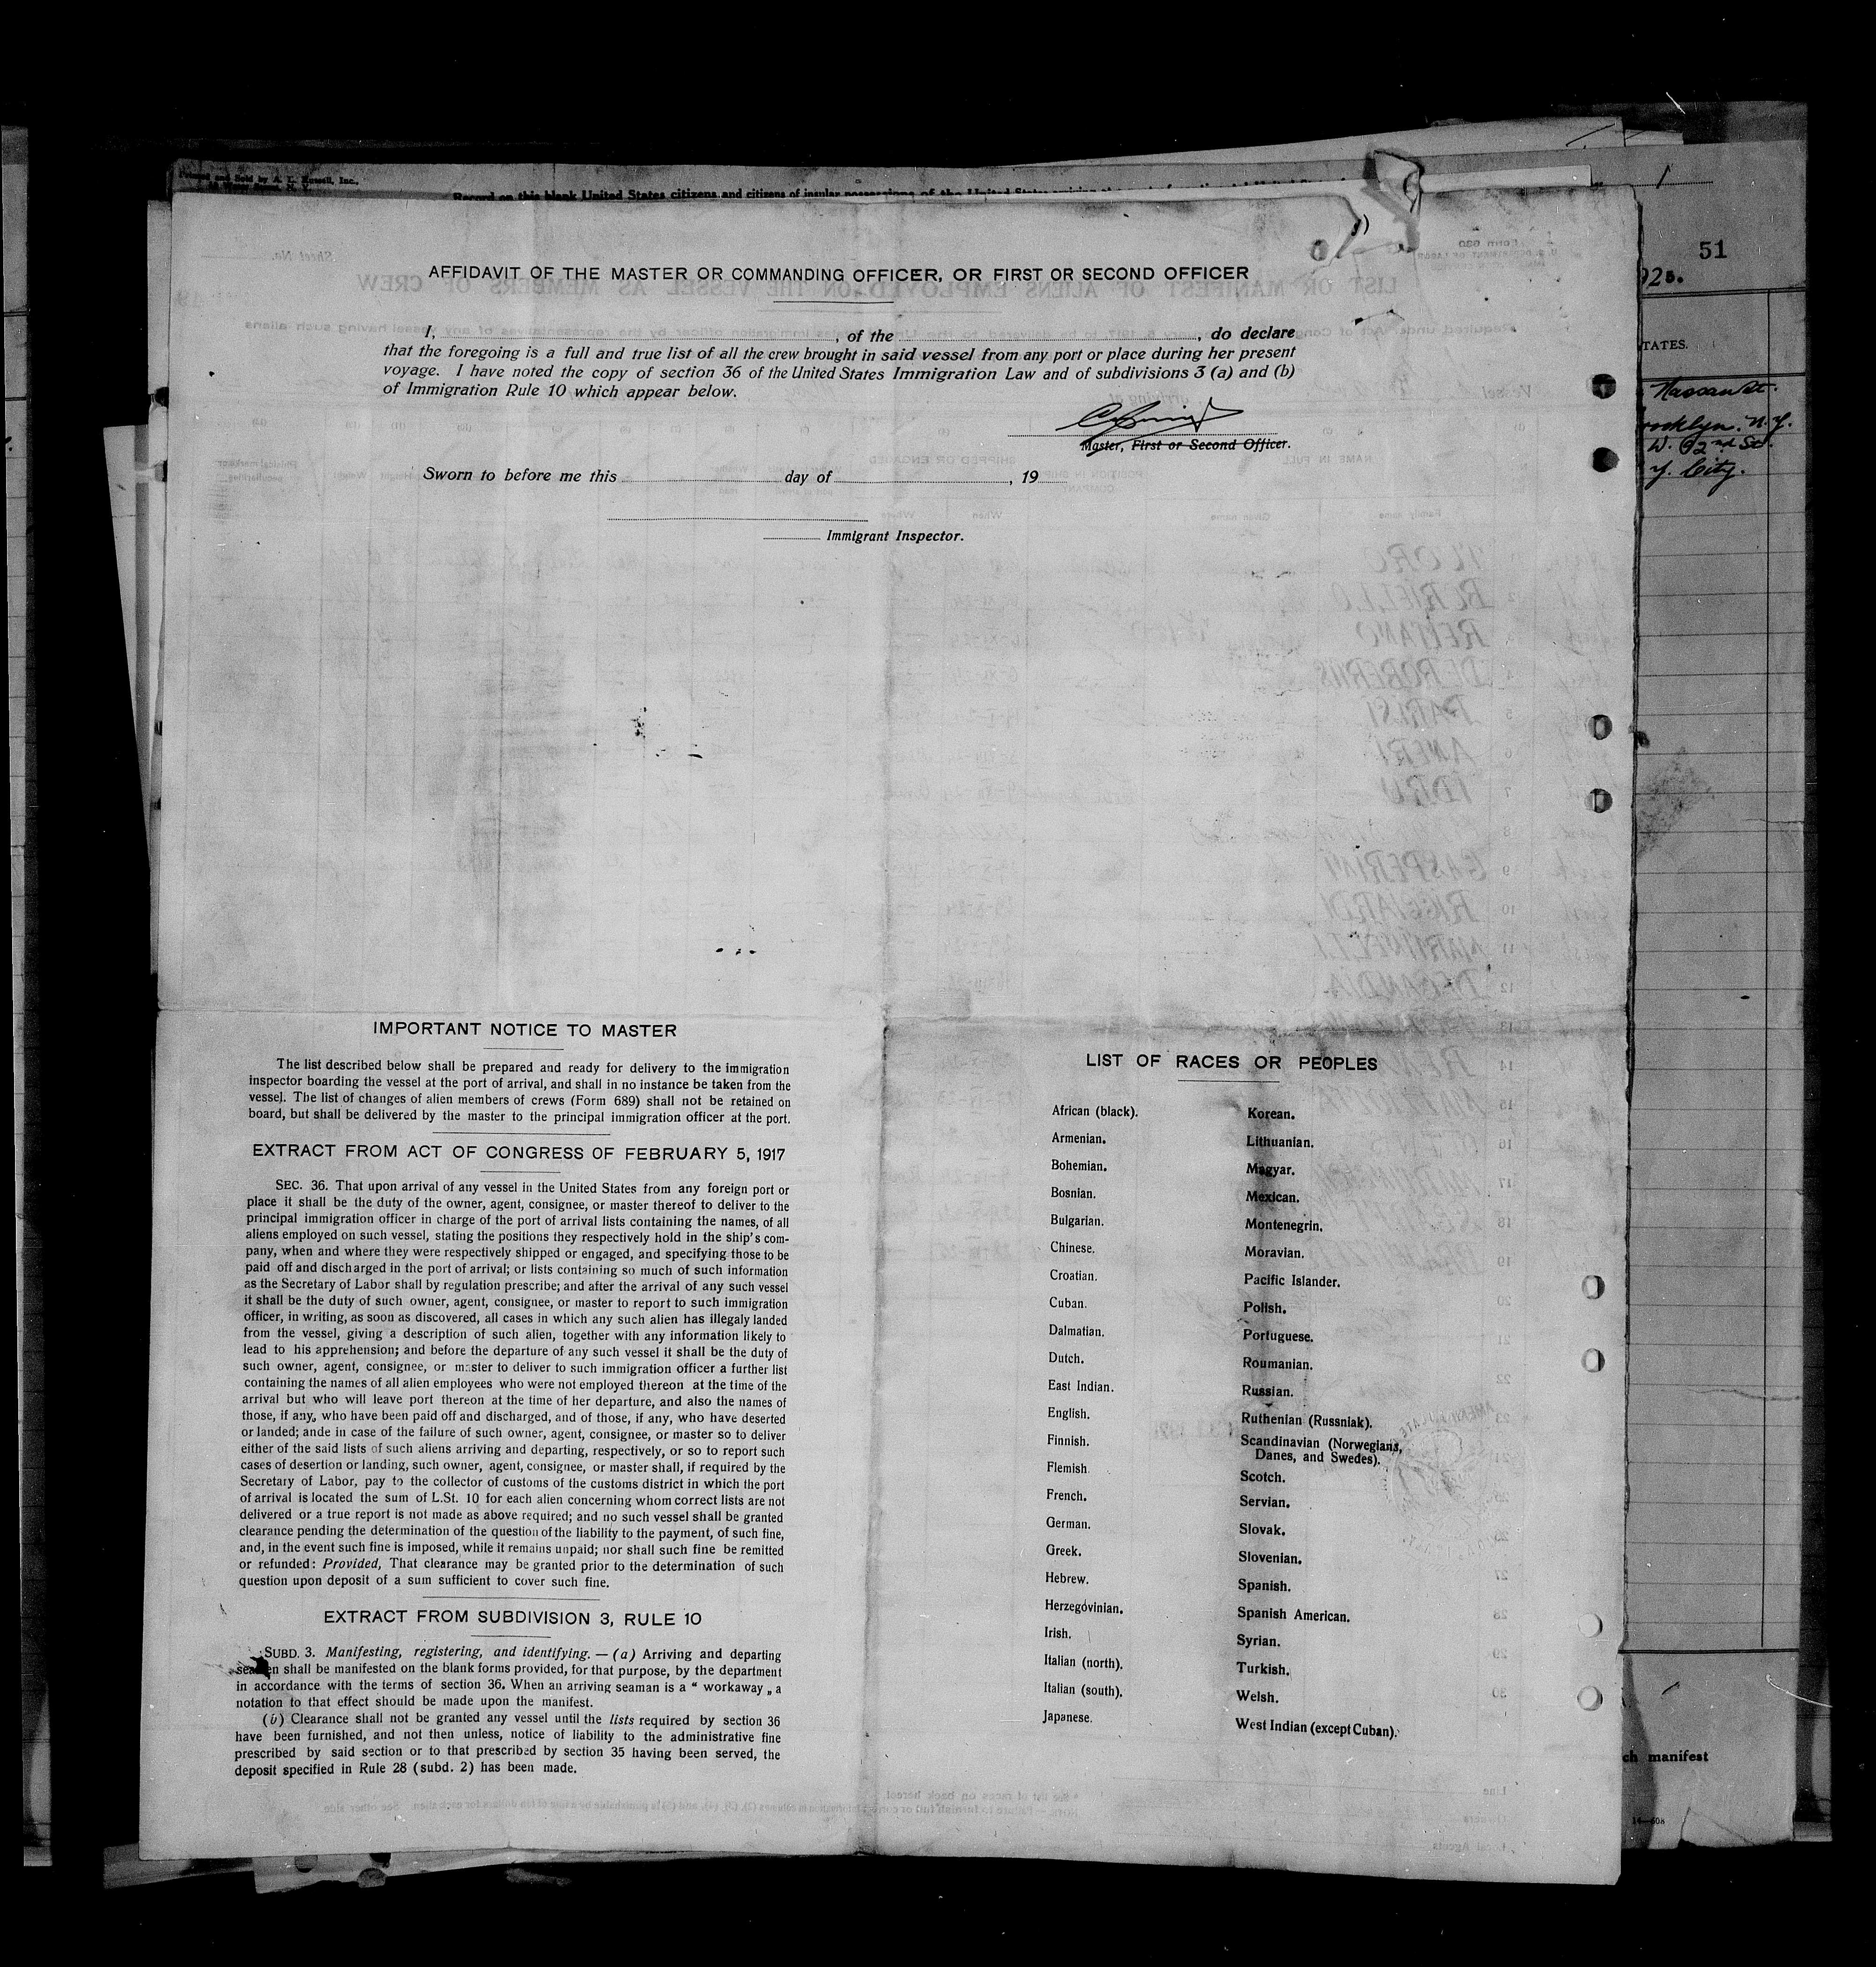 Printed and Sold by A. L. Russell, Inc.,
Record on this blank United States citizens and citizens of insular possessions of the United States
51
AFFIDAVIT OF THE MASTER OR COMMANDING OFFICER, OR FIRST OR SECOND OFFICER
I, , of the , do declare
that the foregoing is a full and true list of all the crew brought in said vessel from any port or place during her present
voyage. I have noted the copy of section 36 of the United States Immigration Law and of subdivisions 3 (a) and (b)
of Immigration Rule 10 which appear below.
Master, First or Second Officer.
Sworn to before me this day of , 19
Immigrant Inspector.
925.
TATES.
Nassau St.
rooklyn. N.Y.
W. 92nd St.
Y. City.
IMPORTANT NOTICE TO MASTER
The list described below shall be prepared and ready for delivery to the immigration
inspector boarding the vessel at the port of arrival, and shall in no instance be taken from the
vessel. The list of changes of alien members of crews (Form 689) shall not be retained on
board, but shall be delivered by the master to the principal immigration officer at the port.
EXTRACT FROM ACT OF CONGRESS OF FEBRUARY 5, 1917
SEC. 36. That upon arrival of any vessel in the United States from any foreign port or
place it shall be the duty of the owner, agent, consignee, or master thereof to deliver to the
principal immigration officer in charge of the port of arrival lists containing the names, of all
aliens employed on such vessel, stating the positions they respectively hold in the ship's com-
pany, when and where they were respectively shipped or engaged, and specifying those to be
paid off and discharged in the port of arrival; or lists containing so much of such information
as the Secretary of Labor shall by regulation prescribe; and after the arrival of any such vessel
it shall be the duty of such owner, agent, consignee, or master to report to such immigration
officer, in writing, as soon as discovered, all cases in which any such alien has illegaly landed
from the vessel, giving a description of such alien, together with any information likely to
lead to his apprehension; and before the departure of any such vessel it shall be the duty of
such owner, agent, consignee, or master to deliver to such immigration officer a further list
containing the names of all alien employees who were not employed thereon at the time of the
arrival but who will leave port thereon at the time of her departure, and also the names of
those, if any, who have been paid off and discharged, and of those, if any, who have deserted
or landed; ande in case of the failure of such owner, agent, consignee, or master so to deliver
either of the said lists of such aliens arriving and departing, respectively, or so to report such
cases of desertion or landing, such owner, agent, consignee, or master shall, if required by the
Secretary of Labor, pay to the collector of customs of the customs district in which the port
of arrival is located the sum of L.St. 10 for each alien concerning whom correct lists are not
delivered or a true report is not made as above required; and no such vessel shall be granted
clearance pending the determination of the question of the liability to the payment, of such fine,
and, in the event such fine is imposed, while it remains unpaid; nor shall such fine be remitted
or refunded: Provided, That clearance may be granted prior to the determination of such
question upon deposit of a sum sufficient to cover such fine.
EXTRACT FROM SUBDIVISION 3, RULE 10
SUBD. 3. Manifesting, registering, and identifying. — (a) Arriving and departing
seamen shall be manifested on the blank forms provided, for that purpose, by the department
in accordance with the terms of section 36. When an arriving seaman is a “ workaway „ a
notation to that effect should be made upon the manifest.
(b) Clearance shall not be granted any vessel until the lists required by section 36
have been furnished, and not then unless, notice of liability to the administrative fine
prescribed by said section or to that prescribed by section 35 having been served, the
deposit specified in Rule 28 (subd. 2) has been made.
LIST OF RACES OR PEOPLES
African (black).
Armenian.
Bohemian.
Bosnian.
Bulgarian.
Chinese.
Croatian.
Cuban.
Dalmatian.
Dutch.
East Indian.
English.
Finnish.
Flemish
French.
German.
Greek.
Hebrew.
Herzegóvinian.
Irish.
Italian (north).
Italian (south).
Japanese.
Korean.
Lithuanian.
Magyar.
Mexican.
Montenegrin.
Moravian.
Pacific Islander.
Polish.
Portuguese.
Roumanian.
Russian.
Ruthenian (Russniak).
Scandinavian (Norwegians,
Danes, and Swedes).
Scotch.
Servian.
Slovak.
Slovenian.
Spanish.
Spanish American.
Syrian.
Turkish.
Welsh.
West Indian (except Cuban).
ch manifest